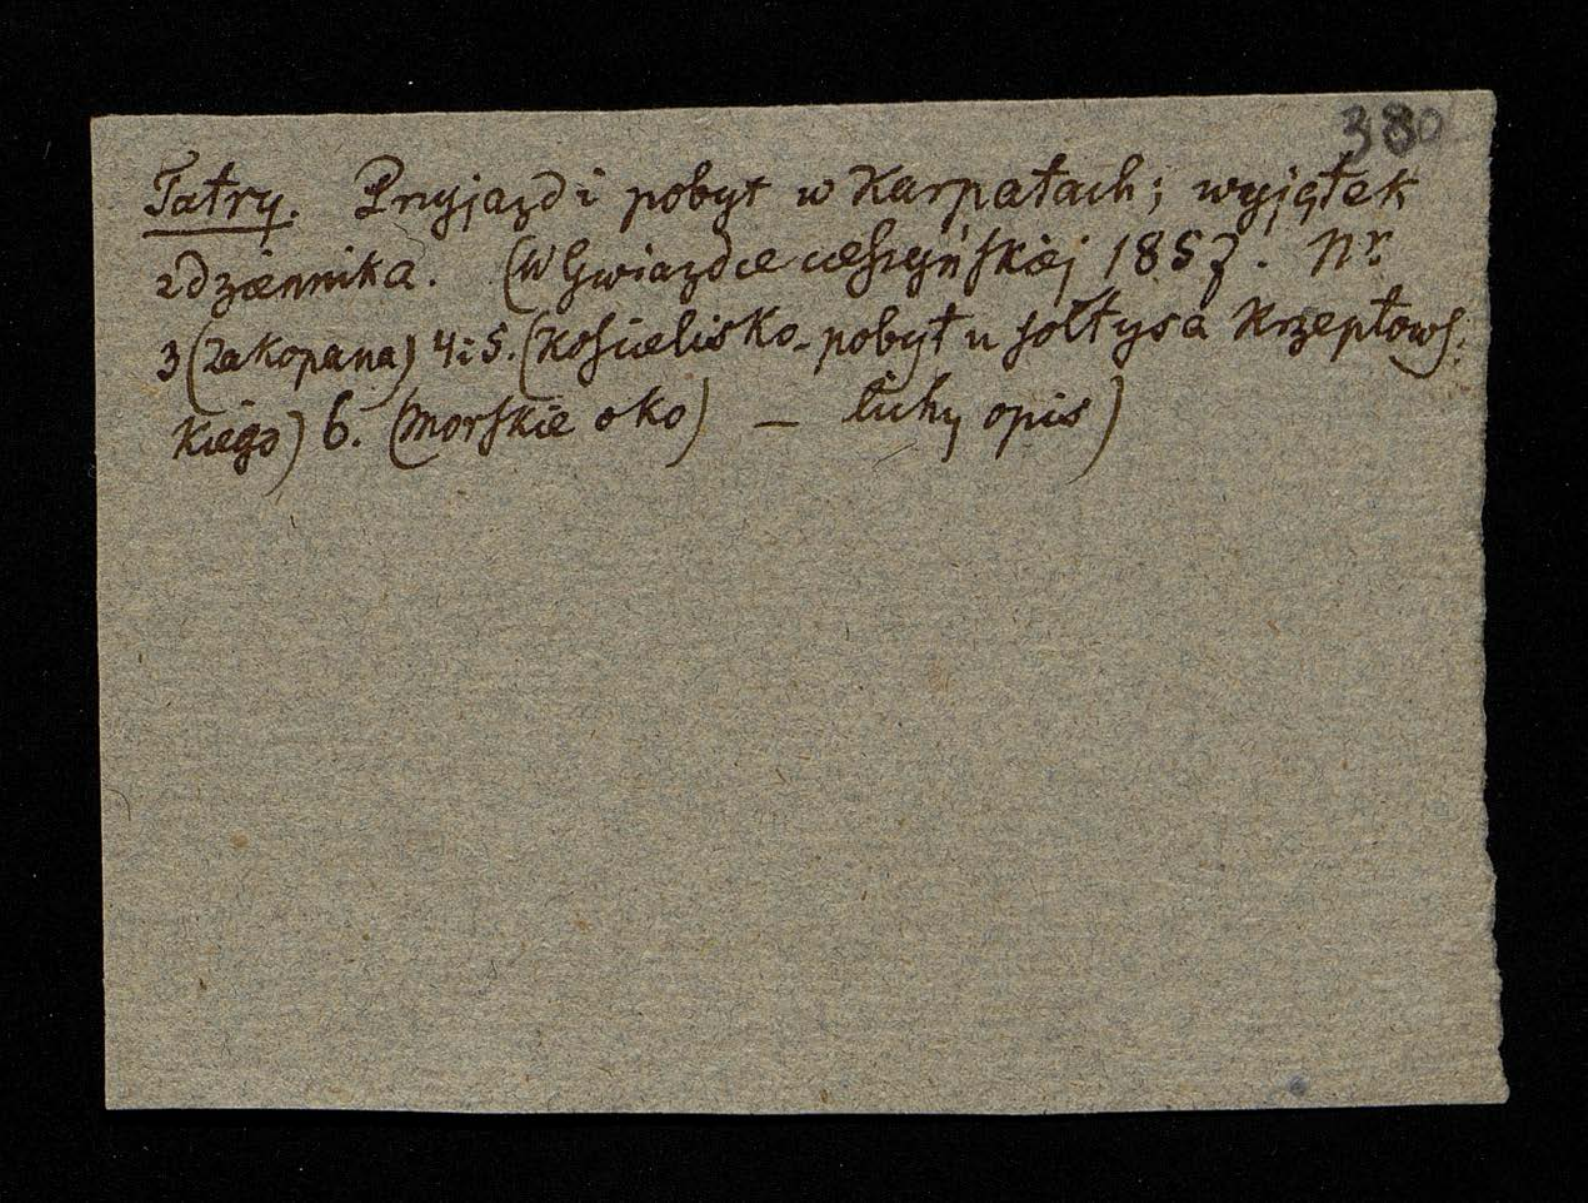 380
Tatry. Przyjazd i pobyt w Karpatach; wyjątek
z dziennika. (W Gwiazdce cieszyńskiej 1857. Nr.
3 (Zakopana) 4 i 5. (Kościelisko - pobyt u sołtysa Krzeptows-
kiego) 6. (Morskie oko) — lichy opis)